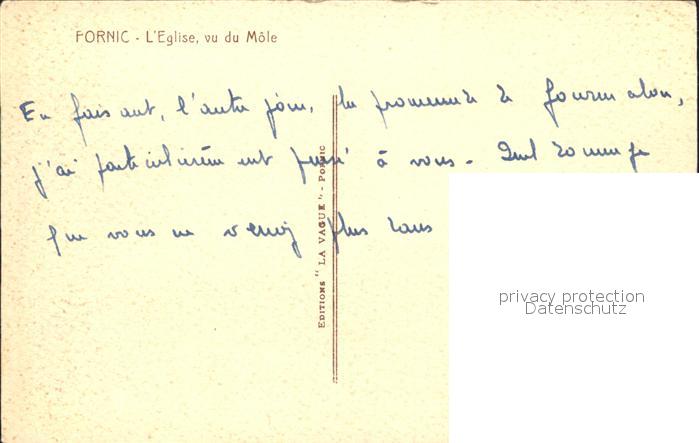 PORNIC - L'Eglise, vu du Môle
En faisant, l'autre jour, la promenade de Gourmalon,
j'ai particulièrement pensé à vous - Quel dommage
que vous ne veniez plus dans
EDITIONS "LA VAGUE" - PORNIC
privacy protection
Datenschutz